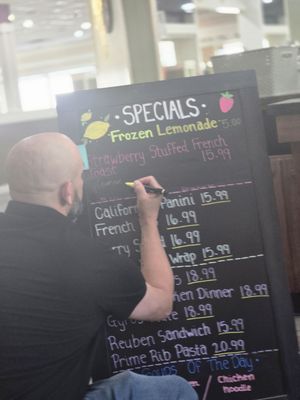 SPECIALS
Frozen Lemonade 5.00
Strawberry Stuffed French
Toast 15.99
Panini 15.99
French 16.99
16.99
Wrap 15.99
18.99
Dinner 18.99
Gyros 18.99
Reuben Sandwich 15.99
Prime Rib Pasta 20.99
Soups Of The Day
Chicken
noodle